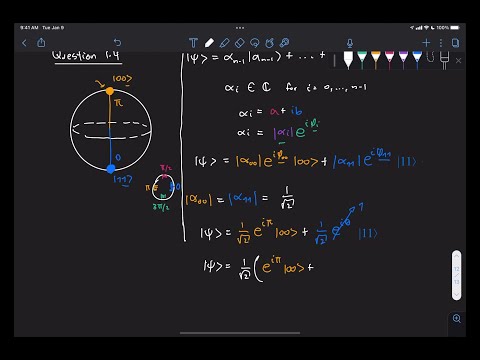 9:41 AM Tue Jan 9
Question 1.4
|00>
π
0
|11>
π/2
π
0
3π/2
|ψ> = αₙ₋₁ |aₙ₋₁) + ... +
αi ∈ ℂ for i = 0, ..., n-1
αi = a + ib
αi = |αi| e^{iφi}
|ψ> = |α₀₀| e^{iφ₀₀} |00> + |α₁₁| e^{iφ₁₁} |11>
|α₀₀| = |α₁₁| = 1/√2
|ψ> = 1/√2 e^{iπ} |00> + 1/√2 e^{i0} |11>
1
|ψ> = 1/√2 ( e^{iπ} |00> +
12
13